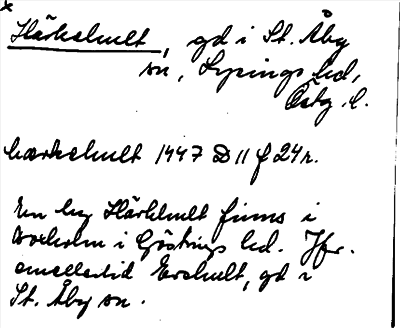 Härkshult, gd i St. Åby
sn, Lysings hd,
Östg. l.
harkshult 1447 D 11 f 24 r.
En by Härkhult finns i
i Göstrings hd. Jfr.
emellertid Ershult, gd i
St. Åby sn.